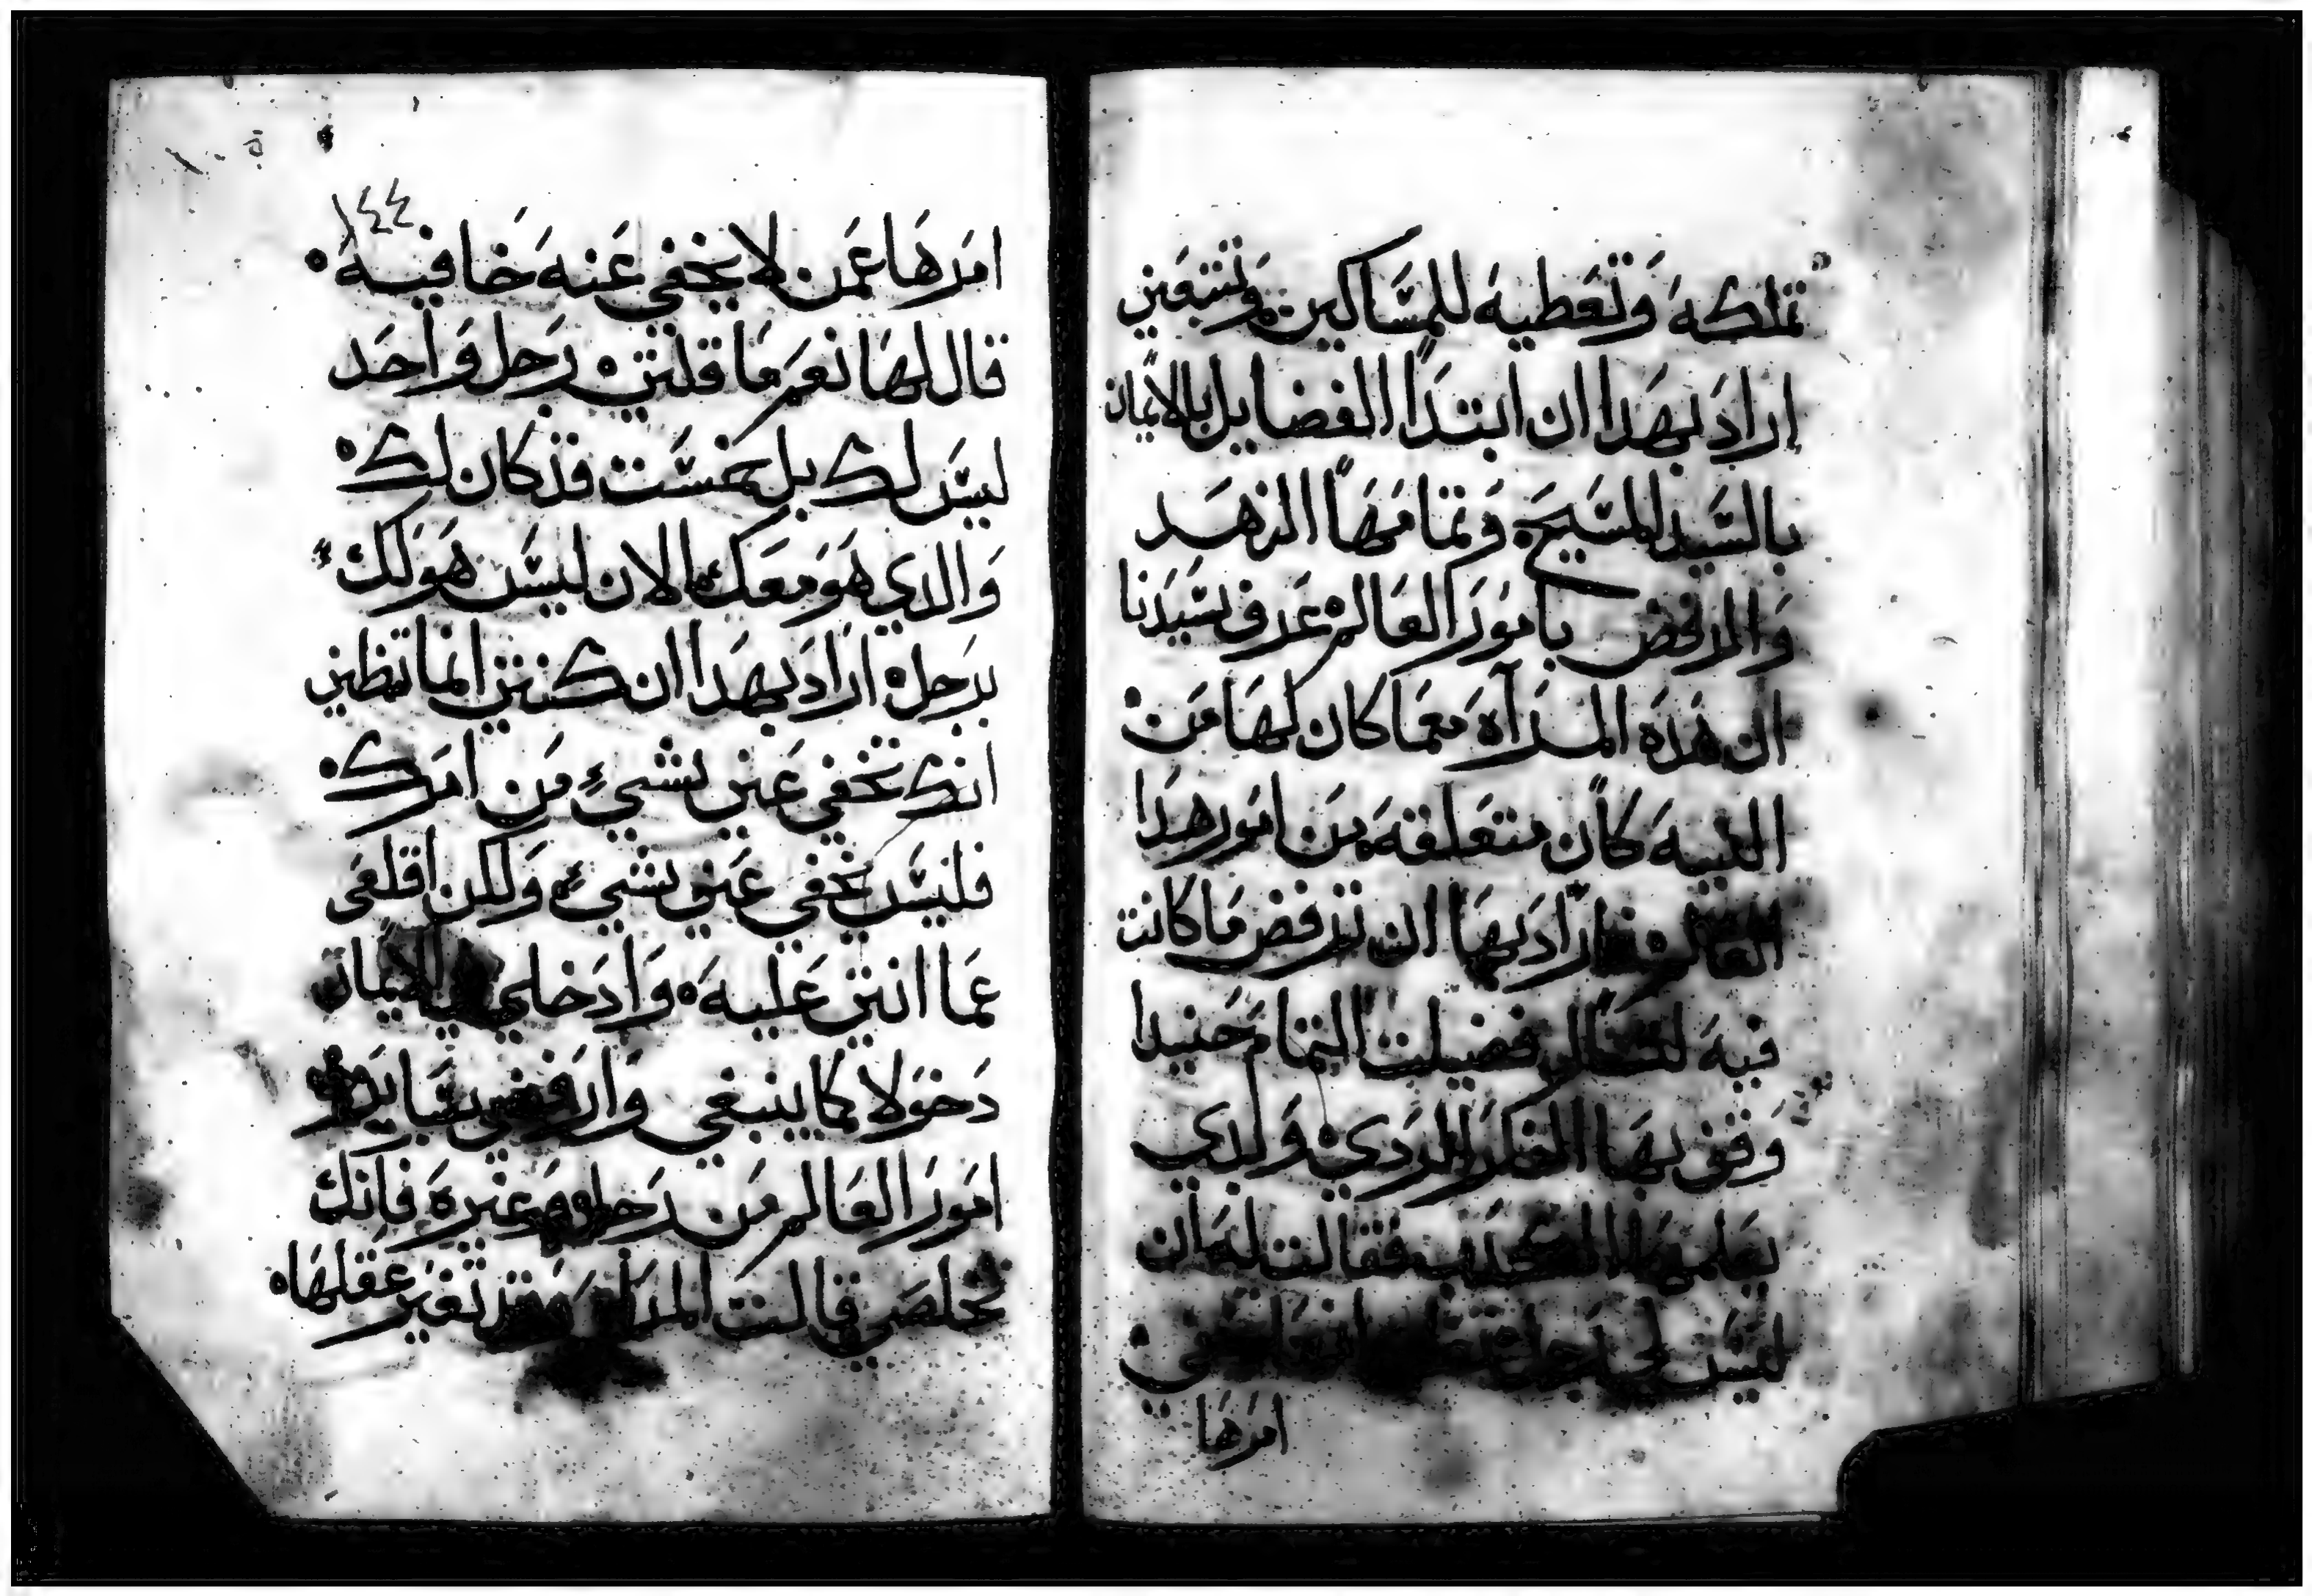 تملكه وتعطيه للمساكين وتتبعني
اراد بهدا ان ابتدا الفضايل بالايمان
بالسيد المسيح وتمامها الزهد
والرفض بامور العالم عرف سيدنا
ان هده المرآه معما كان لها من
النيه كان متعلقه من امور هدا
العالم فاراد بها ان ترفض ما كانت
فيه فضيلت التمام حنيدا
وقف بها الفكر الردي ولدي
يعلمها الكدب فقالت له ان
ليس لي رجل
امرها
١٤٤
امرها عمن لا يخفي عنه خافيه
قال لها نعم ما قلتي رجل واحد
ليس لك بل خمست قد كان لك
والدي هو معك الان ليس هو لك
برجل اراد بهدا ان كنتي انما تظني
انك تخفي عني بشيء من امرك
فليس يخفي عني بشيء ولكن اقلعي
عما انتي عليه وادخلي الايمان
دخولا كما ينبغي وارفضي بساير
امور العالم من رجل وغيره فانك
تخلصي قالت المرآه وقد تغير عقلها